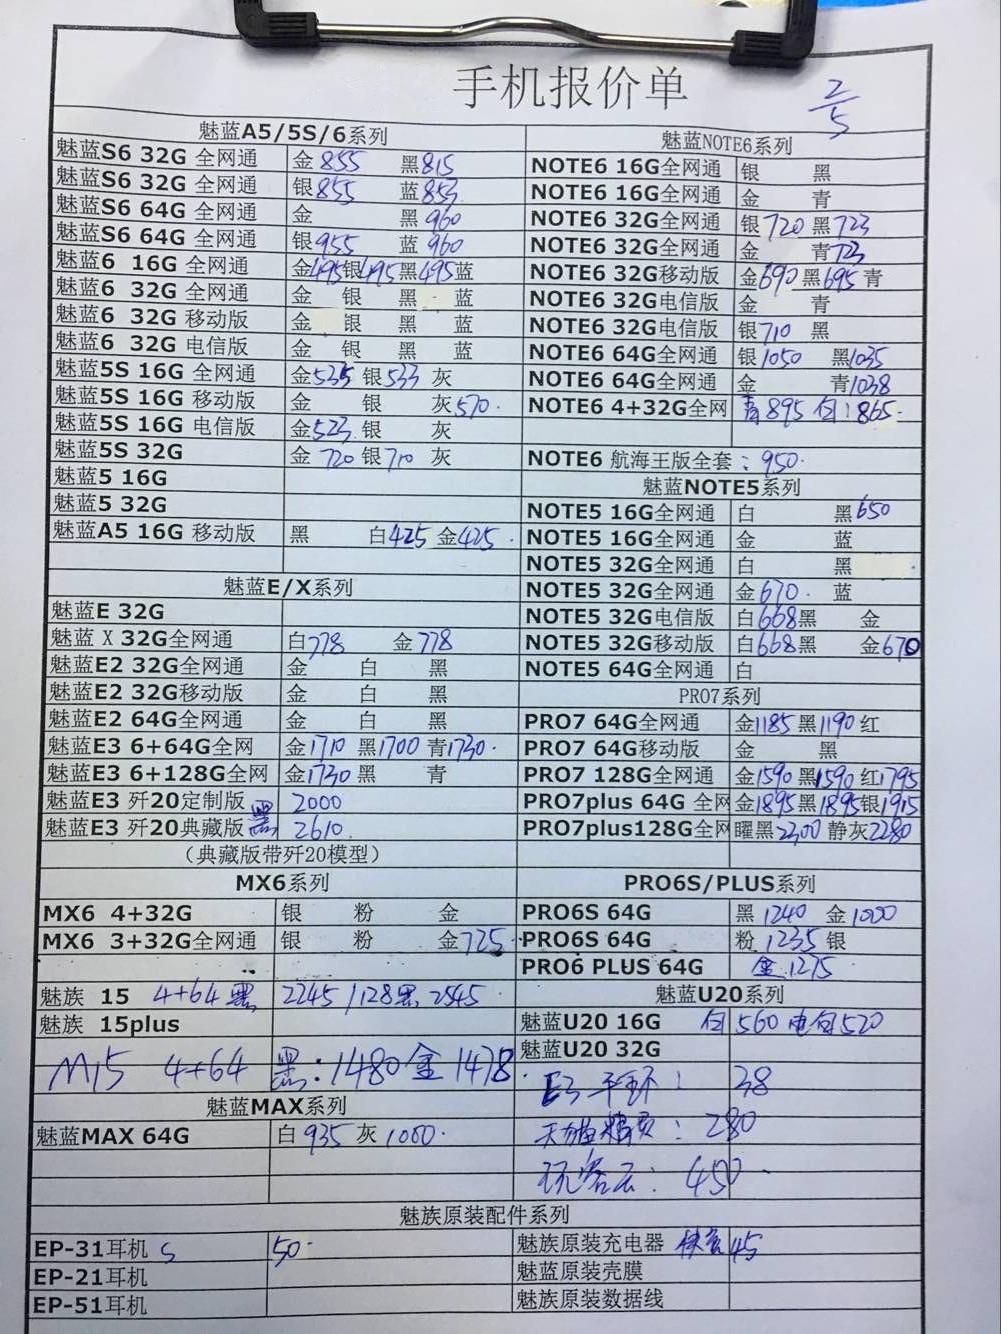 手机报价单
2/5
魅蓝A5/5S/6系列
魅蓝S6 32G 全网通 金 855 黑 815
魅蓝S6 32G 全网通 银 855 蓝 853
魅蓝S6 64G 全网通 金 黑 960
魅蓝S6 64G 全网通 银 955 蓝 960
魅蓝6 16G 全网通 金495 银495 黑495 蓝
魅蓝6 32G 全网通 金 银 黑 蓝
魅蓝6 32G 移动版 金 银 黑 蓝
魅蓝6 32G 电信版 金 银 黑 蓝
魅蓝5S 16G 全网通 金535 银533 灰
魅蓝5S 16G 移动版 金 银 灰570
魅蓝5S 16G 电信版 金523 银 灰
魅蓝5S 32G 金 720 银710 灰
魅蓝5 16G
魅蓝5 32G
魅蓝A5 16G 移动版 黑 白425 金425
魅蓝E/X系列
魅蓝E 32G
魅蓝 X 32G全网通 白778 金 778
魅蓝E2 32G全网通 金 白 黑
魅蓝E2 32G移动版 金 白 黑
魅蓝E2 64G全网通 金 白 黑
魅蓝E3 6+64G全网 金1710 黑1700 青1730
魅蓝E3 6+128G全网 金1730 黑 青
魅蓝E3 歼20定制版 黑 2000
魅蓝E3 歼20典藏版 2610
（典藏版带歼20模型）
MX6系列
MX6 4+32G 银 粉 金
MX6 3+32G全网通 银 粉 金725
魅族 15 4+64 黑 2245 /128黑 2545
魅族 15plus
M15 4+64 黑:1480 金 1478
魅蓝MAX系列
魅蓝MAX 64G 白 935 灰 1000
魅蓝NOTE6系列
NOTE6 16G全网通 银 黑
NOTE6 16G全网通 金 青
NOTE6 32G全网通 银720 黑723
NOTE6 32G全网通 金 青723
NOTE6 32G移动版 金690 黑695 青
NOTE6 32G电信版 金 青
NOTE6 32G电信版 银710 黑
NOTE6 64G全网通 银1050 黑1035
NOTE6 64G全网通 金 青1038
NOTE6 4+32G全网 青895 白:865
NOTE6 航海王版全套:950
魅蓝NOTE5系列
NOTE5 16G全网通 白 黑650
NOTE5 16G全网通 金 蓝
NOTE5 32G全网通 白 黑
NOTE5 32G全网通 金670 蓝
NOTE5 32G电信版 白668 黑 金
NOTE5 32G移动版 白668 黑 金670
NOTE5 64G全网通 白
PRO7系列
PRO7 64G全网通 金1185 黑1190 红
PRO7 64G移动版 金 黑
PRO7 128G全网通 金1590 黑1590 红1795
PRO7plus 64G 全网 金1895 黑1895 银1915
PRO7plus128G全网 曜黑2300 静灰2280
PRO6S/PLUS系列
PRO6S 64G 黑 1240 金 1000
PRO6S 64G 粉 1235 银
PRO6 PLUS 64G 金 1275
魅蓝U20系列
魅蓝U20 16G 白 560 电白520
魅蓝U20 32G
E3 手环: 38
天猫精灵: 280
玩客云: 450
魅族原装配件系列
EP-31耳机 S 50
EP-21耳机
EP-51耳机
魅族原装充电器 快充 45
魅蓝原装壳膜
魅族原装数据线